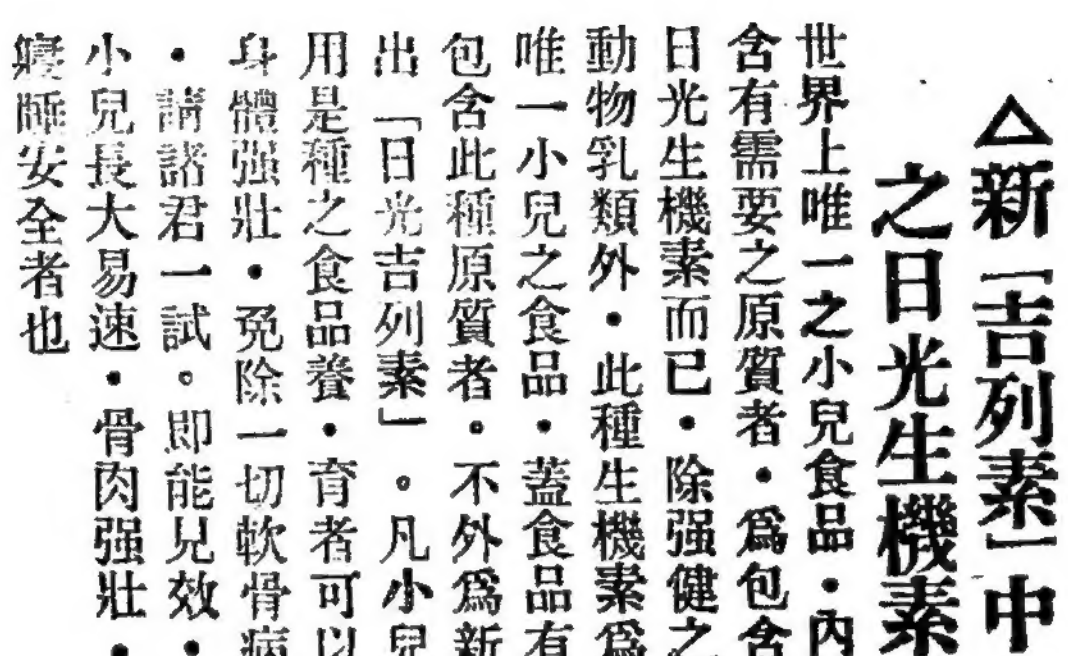 △新「吉列素」中
之日光生機素
世界上唯一之小兒食品・內
含有需要之原質者・爲包含
日光生機素而已・除强健之
動物乳類外・此種生機素爲
唯一小兒之食品・蓋食品有
包含此種原質者。不外爲新
出「日光吉列素」。凡小兒
用是種之食品養・育者可以
身體强壯・免除一切軟骨病
・請諸君一試。即能見效・
小兒長大易速・骨肉强壯・
寢睡安全者也